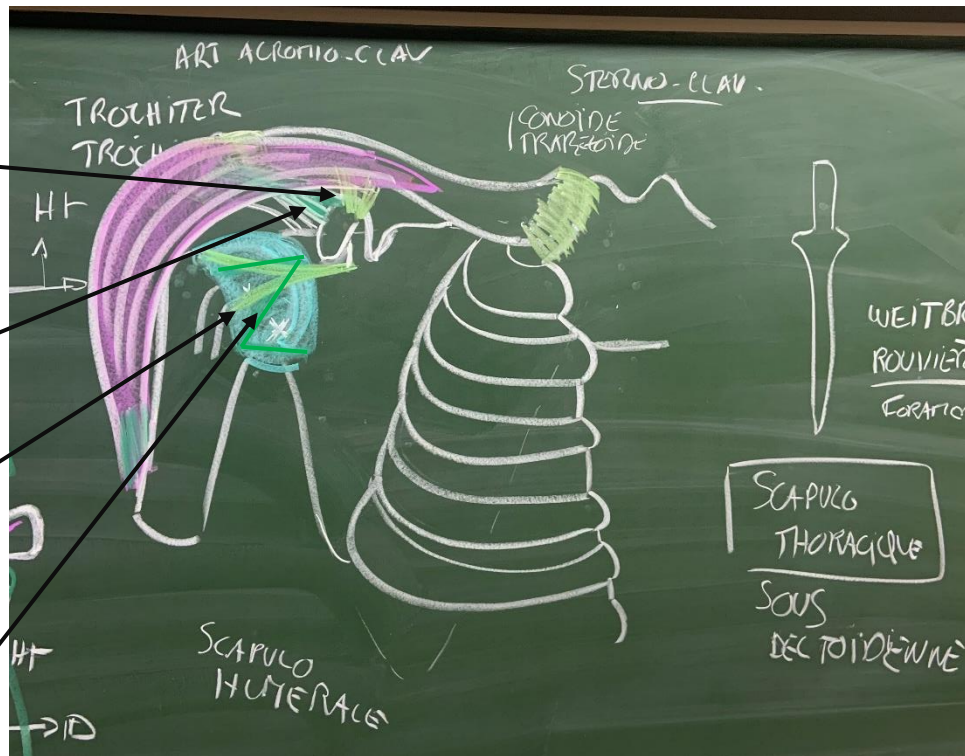 ART ACROMIO-CLAV
STERNO-CLAV.
TROCHITER
TROCHI
CONOÏDE
TRAPEZOÏDE
Ht
WEITBR
ROUVIÈR
FORAME
SCAPULO
THORACIQUE
SOUS
DECTOÏDIENNE
SCAPULO
HUMERALE
Ht
D